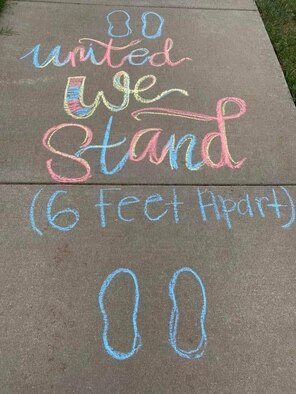 united
We
Stand
(6 Feet Apart)